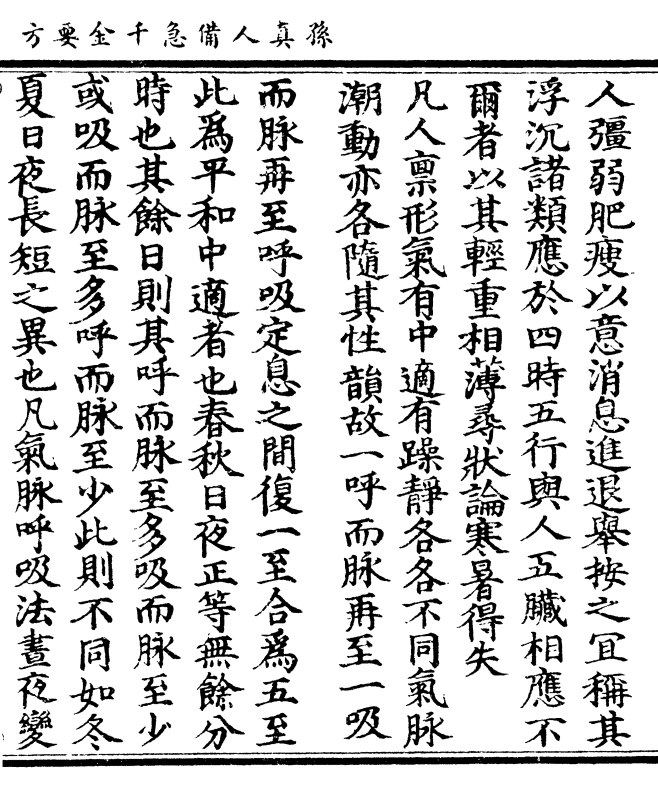 孫真人備急千金要方
人彊弱肥瘦以意消息進退舉按之冝稱其
浮沉諸類應於四時五行與人五臟相應不
爾者以其輕重相薄尋狀論寒暑得失
凡人禀形氣有中適有躁靜各各不同氣脉
潮動亦各隨其性韻故一呼而脉再至一吸
而脉再至呼吸定息之間復一至合爲五至
此爲平和中適者也春秋日夜正等無餘分
時也其餘日則其呼而脉至多吸而脉至少
或吸而脉至多呼而脉至少此則不同如冬
夏日夜長短之異也凡氣脉呼吸法晝夜變